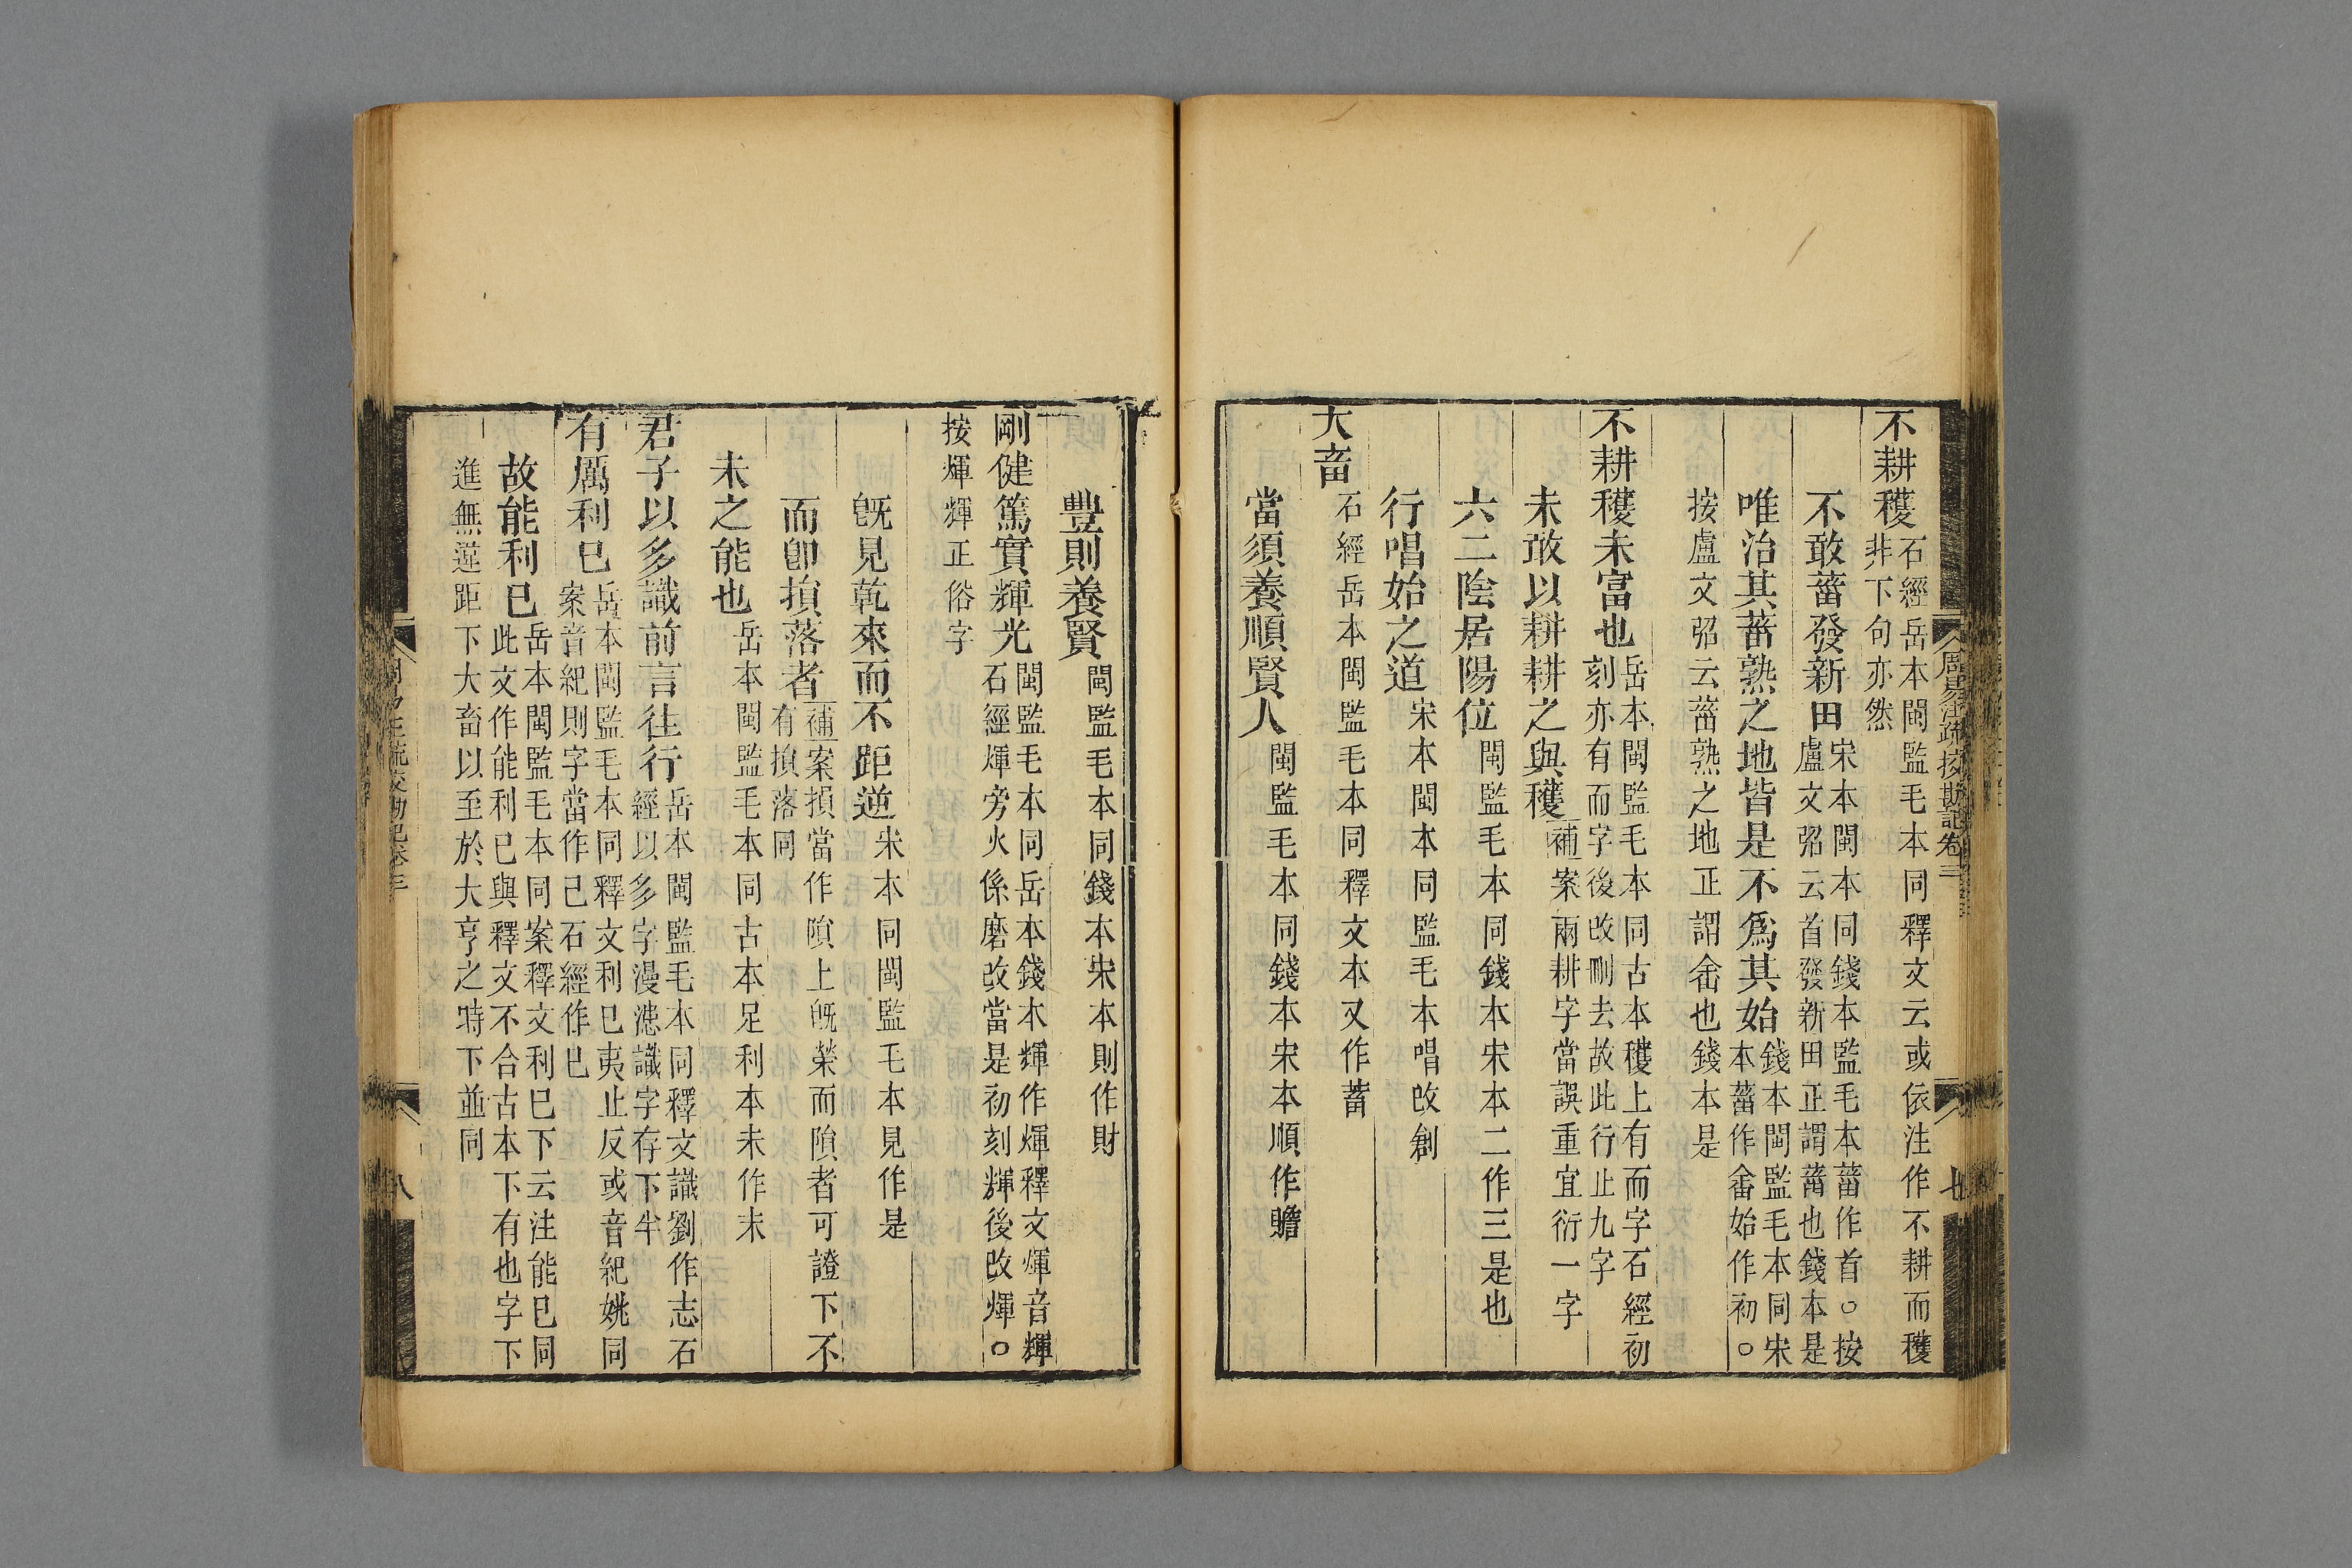 周易注疏挍勘記卷三
七
不耕穫石經岳本閩監毛本同釋文云或依注作不耕而穫
非下句亦然
不敢菑發新田宋本閩本同錢本監毛本菑作首○按
盧文弨云首發新田正謂菑也錢本是
唯治其菑熟之地皆是不爲其始錢本閩監毛本同宋
本菑作畬始作初○
按盧文弨云菑熟之地正謂畬也錢本是
不耕穫未富也岳本閩監毛本同古本穫上有而字石經初
刻亦有而字後改刪去故此行止九字
未敢以耕耕之與穫補案兩耕字當誤重宜衍一字
六二陰居陽位閩監毛本同錢本宋本二作三是也
行唱始之道宋本閩本同監毛本唱改創
大畜石經岳本閩監毛本同釋文本又作蓄
當須養順賢人閩監毛本同錢本宋本順作贍
豐則養賢閩監毛本同錢本宋本則作財
剛健篤實輝光閩監毛本同岳本錢本輝作煇釋文煇音輝
石經煇旁火係磨改當是初刻輝後改煇○
按煇輝正俗字
旣見乾來而不距逆宋本同閩監毛本見作是
而卽損落者補案損當作隕上旣榮而隕者可證下不
有損落同
未之能也岳本閩監毛本同古本足利本未作末
君子以多識前言往行岳本閩監毛本同釋文識劉作志石
經以多字漫漶識字存下半
有厲利已岳本閩監毛本同釋文利已夷止反或音紀姚同
案音紀則字當作己石經作已
故能利已岳本閩監毛本同案釋文利已下云注能已同
此文作能利已與釋文不合古本下有也字下
進無違距下大畜以至於大亨之時下並同
八